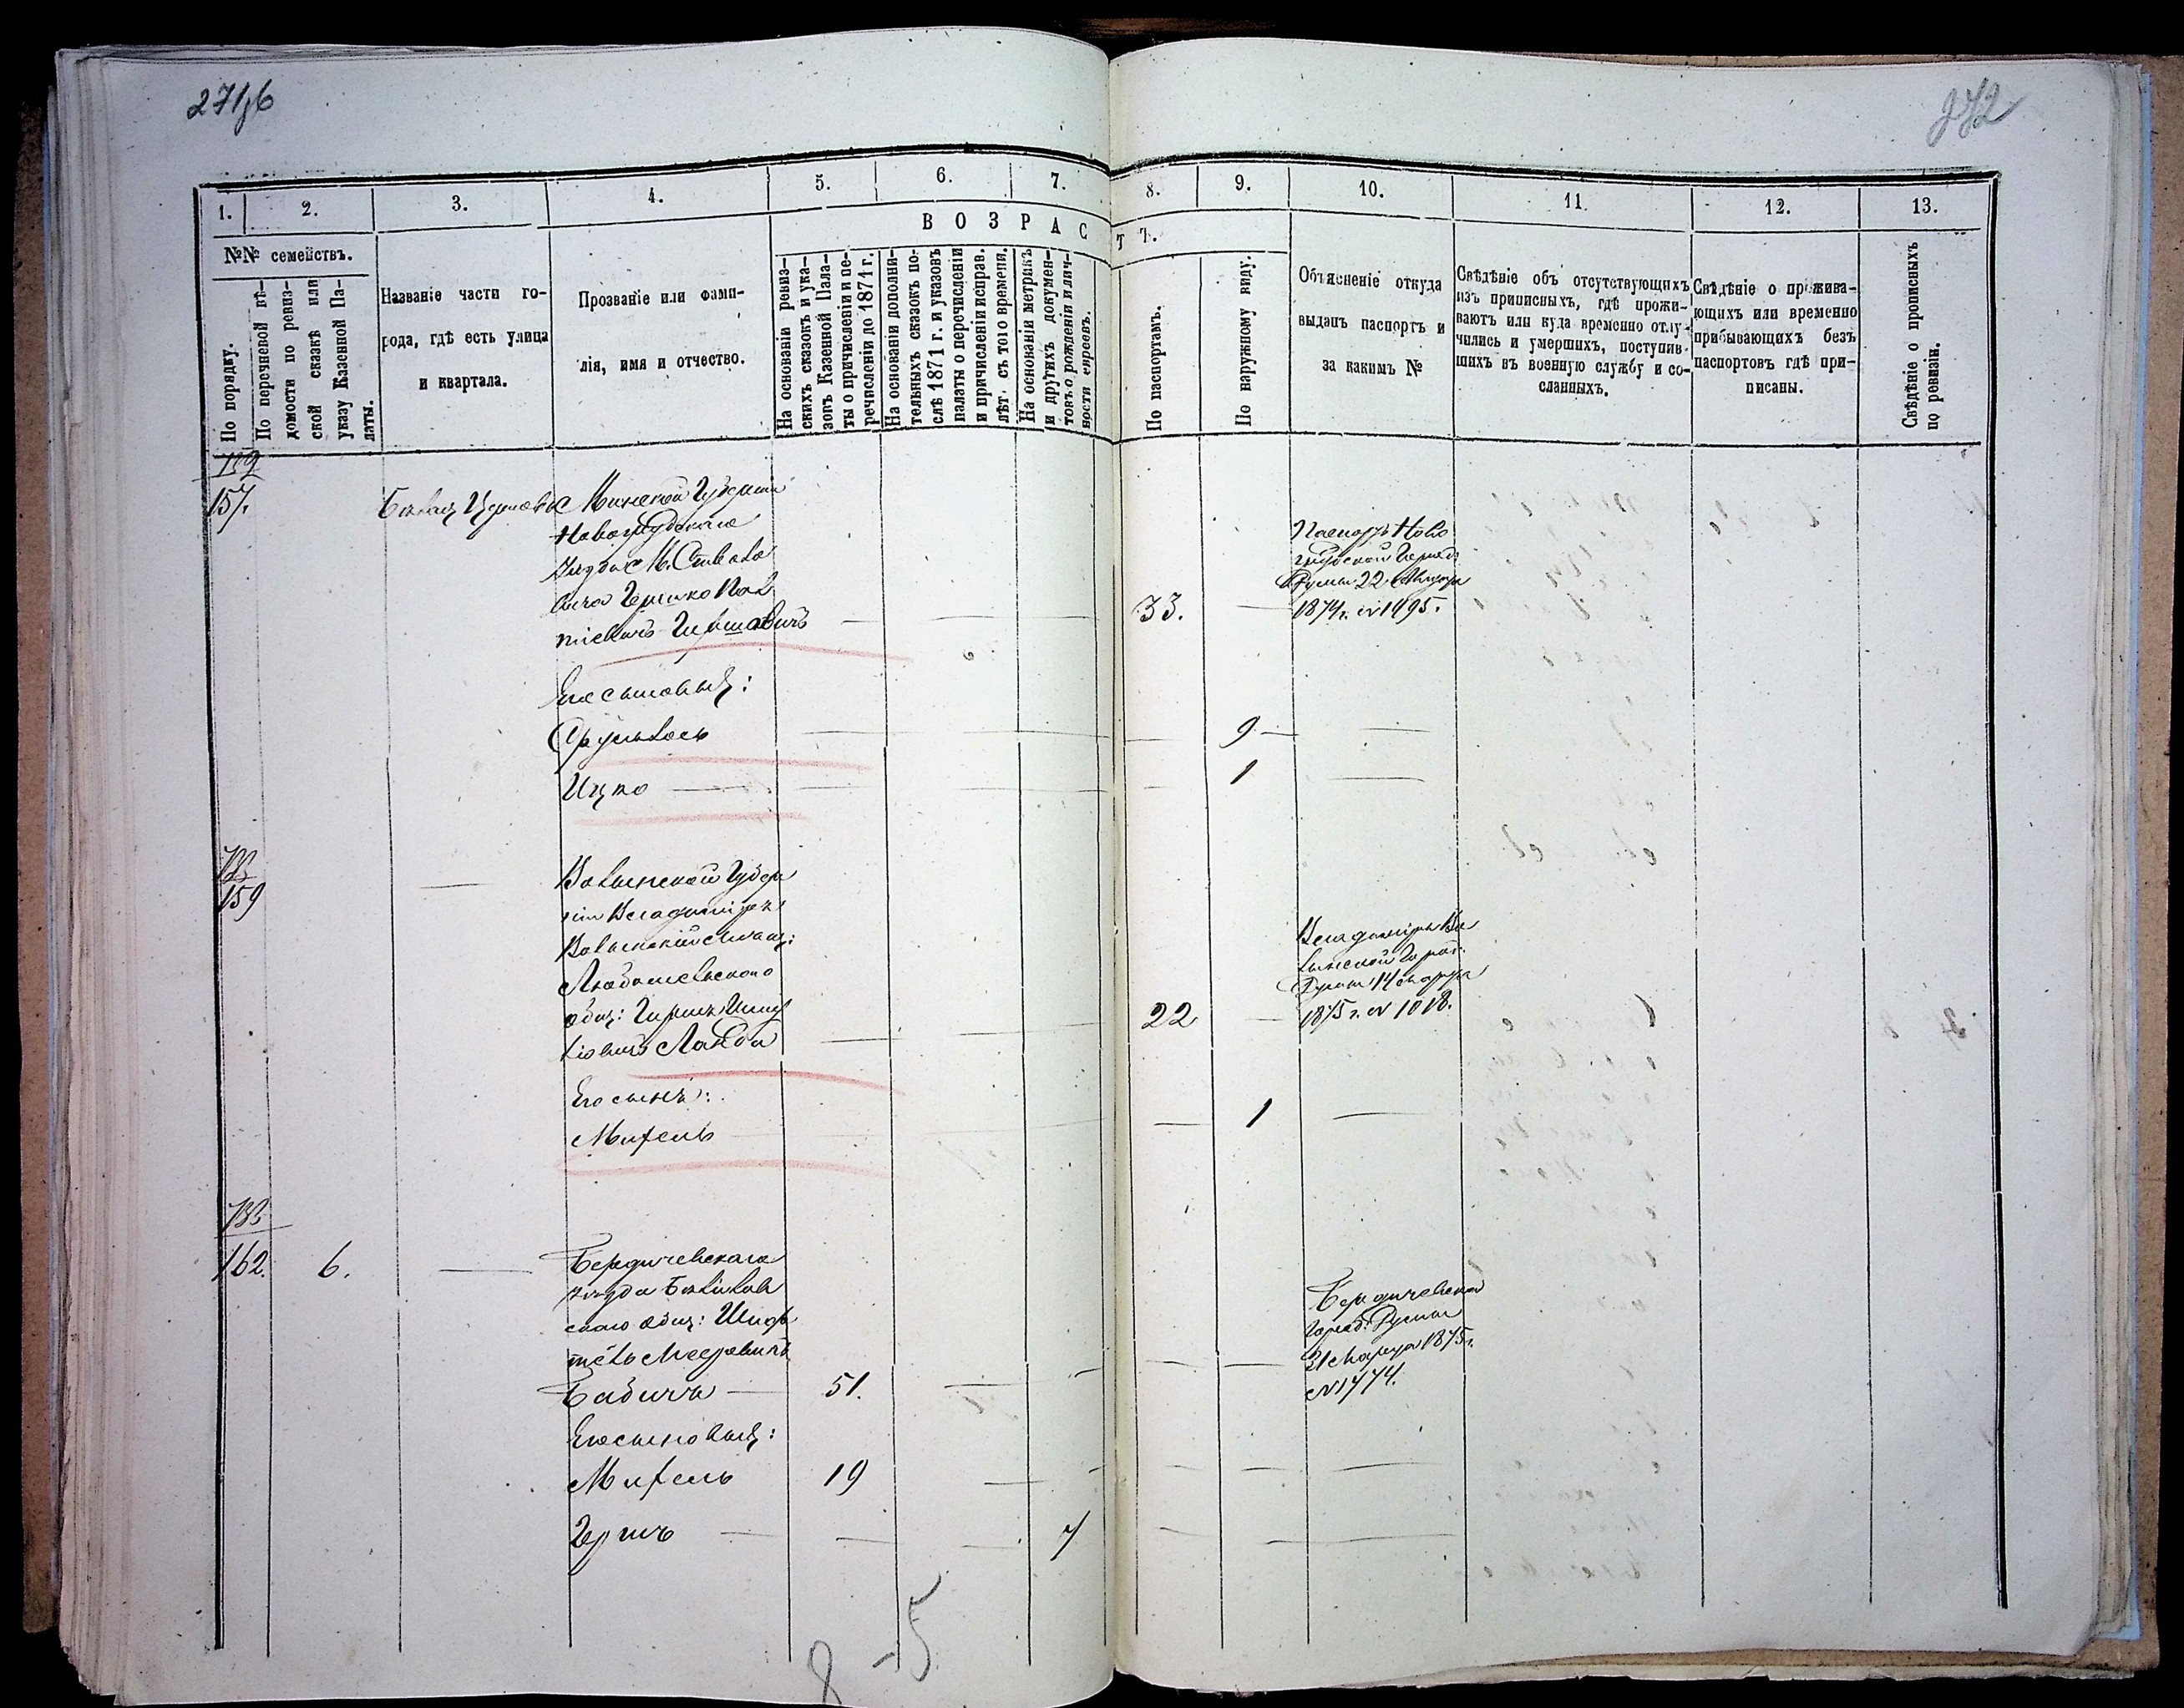 271об
272
1.
2.
3.
4.
5.
6.
7.
8.
9.
10.
11.
12.
13.
ВОЗРАСТЪ.
№№ семействъ.
По порядку.
По перечневой вѣ-
домости по ревиз-
ской сказкѣ или
указу Казенной Па-
латы.
Названіе части го-
рода, гдѣ есть улица
и квартала.
Прозваніе или фами-
лія, имя и отчество.
На основаніи ревиз-
скихъ сказокъ и ука-
зовъ Казенной Пала-
ты о причисленіи и пе-
речисленіи до 1871 г.
На основаніи дополни-
тельныхъ сказокъ по-
слѣ 1871 г. и указовъ
палаты о перечисленіи
и причисленіи исправ.
лѣт. съ того времени.
На основаніи метрикъ
и другихъ докумен-
товъ о рожденіи и лич-
ности евреевъ.
По паспортамъ.
По наружному виду.
Объясненіе откуда
выданъ паспортъ и
за какимъ №
Свѣдѣніе объ отсутствующихъ
изъ приписныхъ, гдѣ прожи-
ваютъ или куда временно отлу-
чились и умершихъ, поступив-
шихъ въ военную службу и со-
сланныхъ.
Свѣдѣніе о прожива-
ющихъ или временно
прибывающихъ безъ
паспортовъ гдѣ при-
писаны.
Свѣдѣніе о прописныхъ
по ревизіи.
157.
Минской Губерніи
Новогрудскаго
Уѣзда М.
Гершко
Гиршовичъ
33.
Паспортъ Ново
грудской Город:
Думы 22
1874 г. № 1495.
Его сыновья:
Срульвось
9
Ицко
1
159
Волынской Губер
ніи Владиміръ
Волынскій
общ: Гиршъ
Ландо
22
Владиміръ Во
лынской Город.
Думы 14 Марта
1875 г. № 1018.
Его сынъ:
Михель
1
162.
6.
Бердичевскаго
уѣзда
скаго общ:
Мееровичъ
Бабичъ
51.
Бердичевской
Город: Думы
31 Марта 1875 г.
№ 1474.
Его сыновья:
Михель
19
Гершъ
7